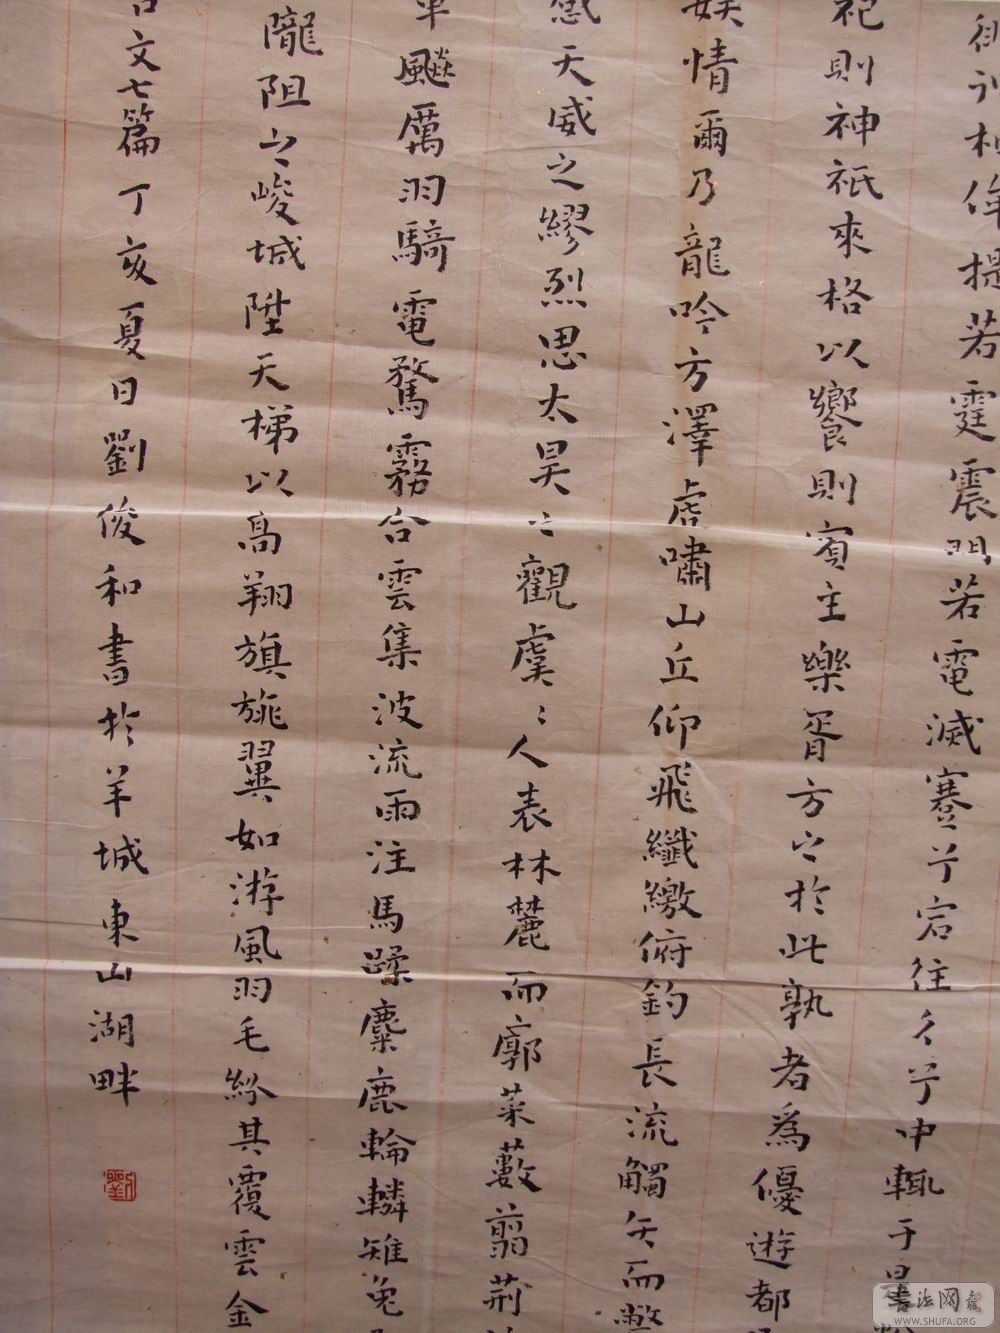 相侔提若霆震閃若電滅蹇兮宕往彳兮中輒于是
祀則神祇來格以饗則賓主樂胥方之於此孰者為優遊都
娛情爾乃龍吟方澤虎嘯山丘仰飛纖繳俯釣長流觸矢而斃
感天威之繆烈思太昊之觀虞之人表林麓而廓萊藪翦荊
車飈厲羽騎電騖霧合雲集波流雨注馬蹂麋鹿輪轔雉兔
隴阻之峻城陞天梯以高翔旗旐翼如游風羽毛紛其覆雲金
古文七篇丁亥夏日劉俊和書於羊城東山湖畔
劉
書法網
WWW.SHUFA.ORG